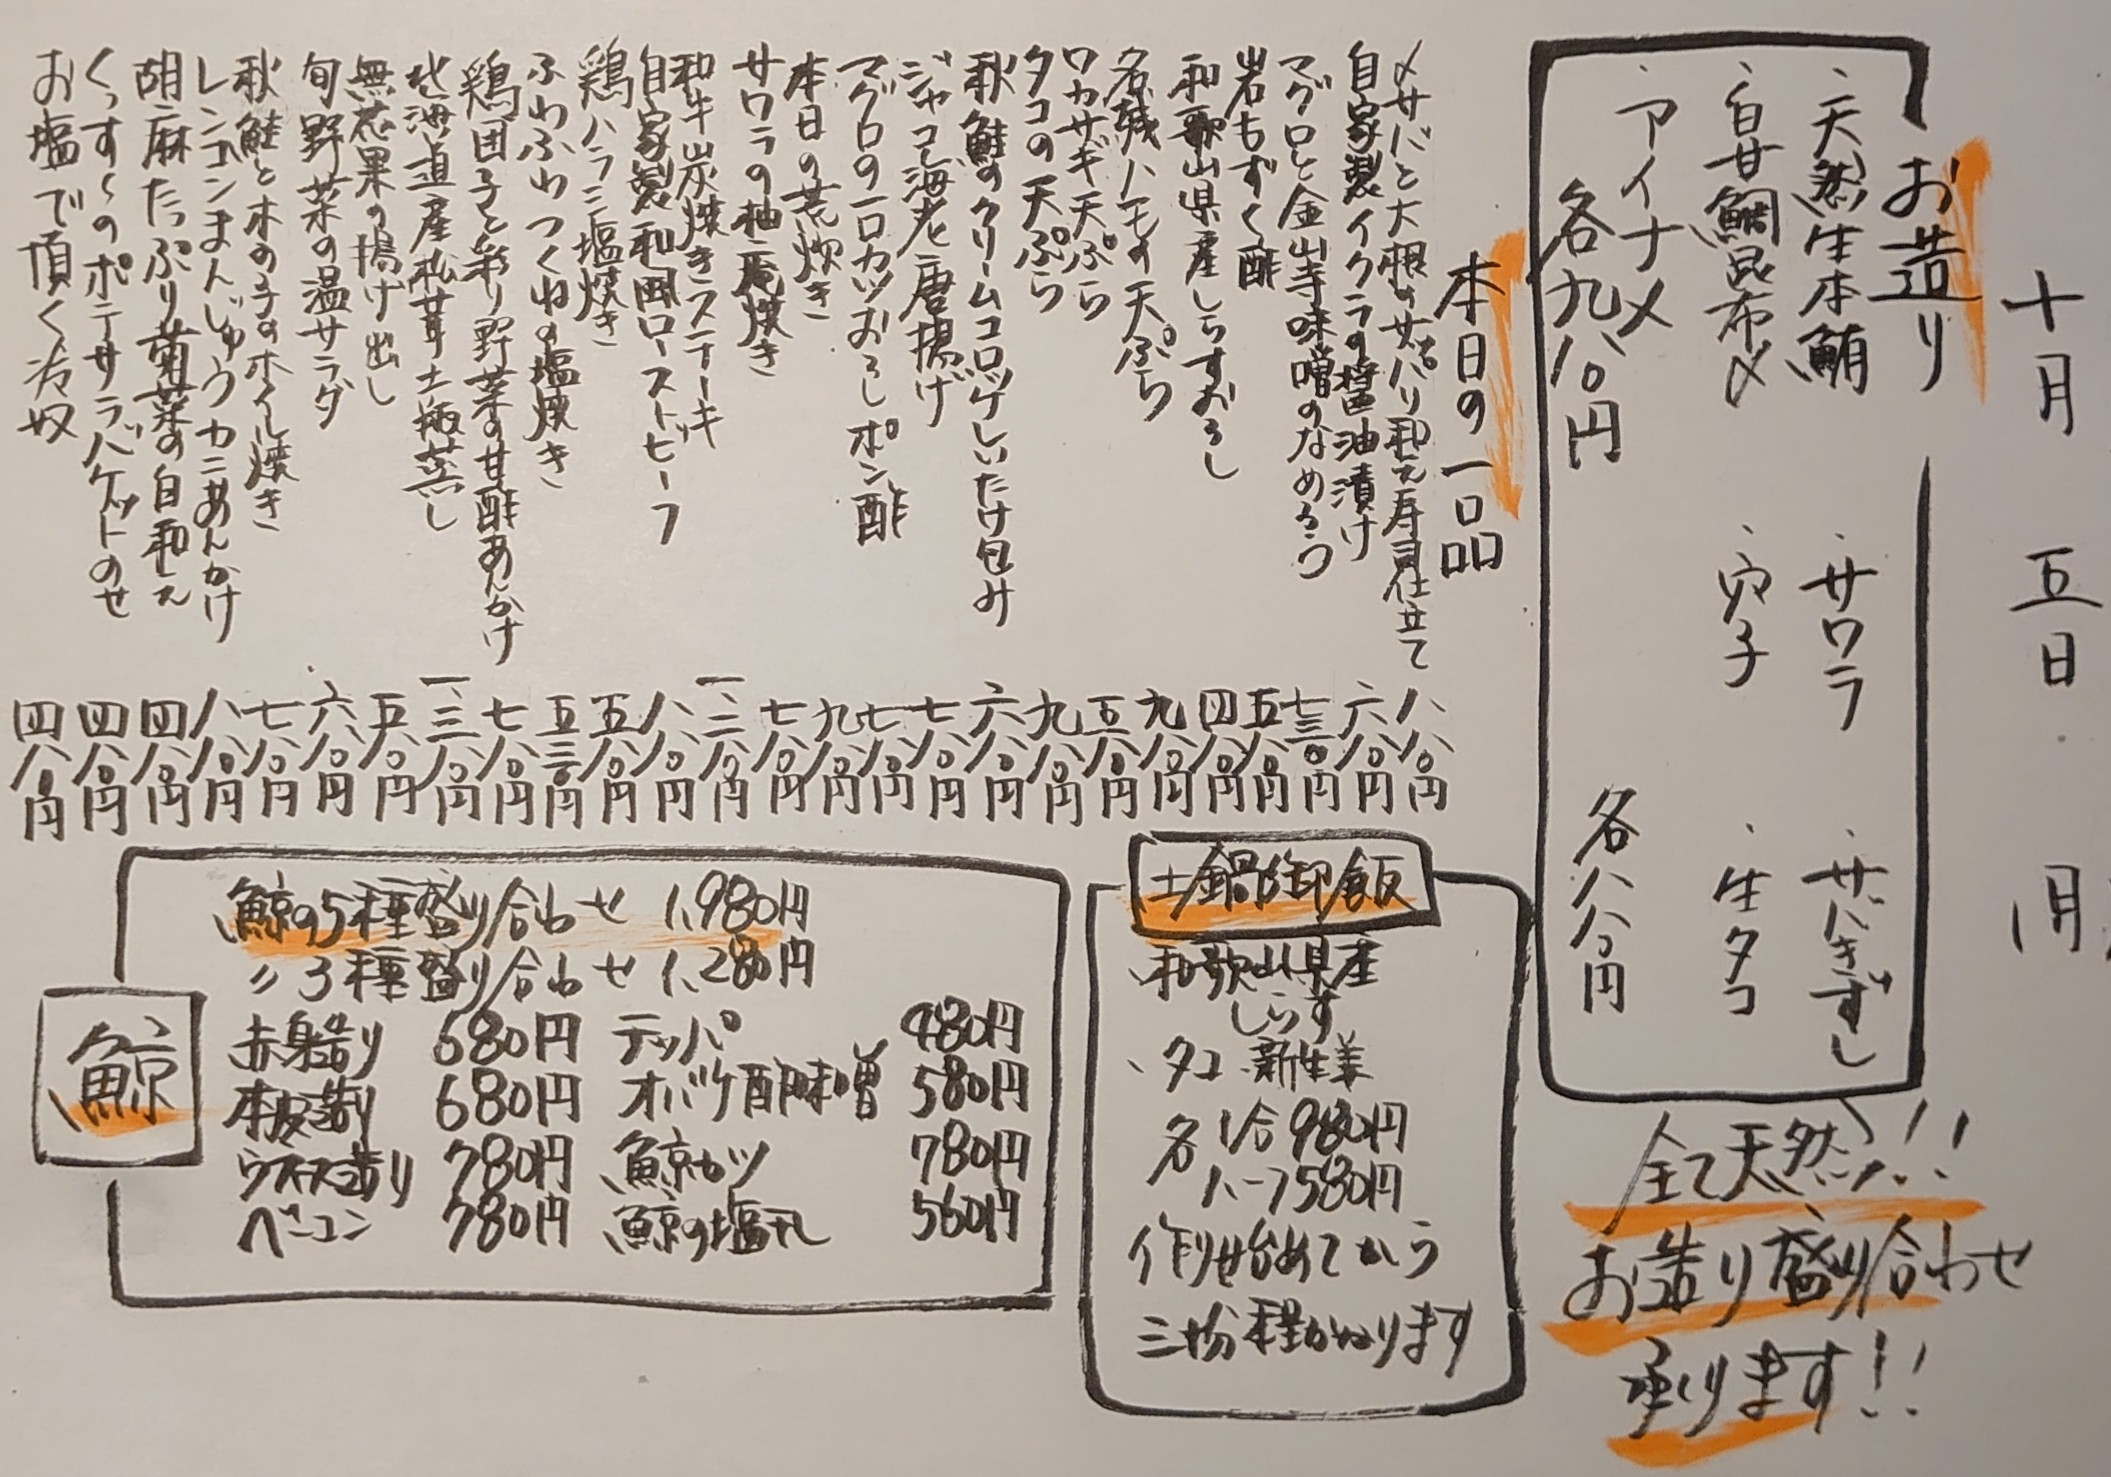 十月 五日 月
お造り
・天然生本鮪 ・サワラ ・サバきずし
・白甘鯛昆布〆 ・穴子 ・生タコ
・アイナメ
各九八〇円 各八八〇円
全て天然!!
お造り盛り合わせ
承ります!!
本日の一品
〆サバと大根のサッパリ和え寿司仕立て 八八〇円
自家製イクラの醤油漬け 六八〇円
マグロと金山寺味噌のなめろう 七三〇円
岩もずく酢 五八〇円
和歌山県産しらすおろし 四八〇円
名残ハモの天ぷら 九八〇円
ワカサギ天ぷら 五八〇円
タコの天ぷら 九八〇円
秋鮭のクリームコロッケしいたけ包み 六八〇円
ジャコ海老唐揚げ 七八〇円
マグロの一口カツおろしポン酢 七八〇円
本日の荒炊き 九八〇円
サワラの柚庵焼き 七八〇円
和牛炭焼きステーキ 一、二八〇円
自家製和風ローストビーフ 八八〇円
鶏ハラミ塩焼き 五八〇円
ふわふわつくねの塩焼き 五三〇円
鶏団子と彩り野菜の甘酢あんかけ 七八〇円
北海道産松茸土瓶蒸し 一、三八〇円
無花果の揚げ出し 五八〇円
旬野菜の温サラダ 六八〇円
秋鮭と木の子のホイル焼き 七八〇円
レンコンまんじゅうカニあんかけ 八八〇円
胡麻たっぷり菊菜の白和え 四八〇円
くっすぅのポテサラバケットのせ 四八〇円
お塩で頂く冷奴 四八〇円
土鍋御飯
・和歌山県産
しらす
・タコ 新生姜
各 1合 980円
ハーフ 580円
作り始めてから
三拾分程かかります
鯨
鯨の5種盛り合わせ 1,980円
〃 3種盛り合わせ 1,280円
赤身造り 680円 テッパ 480円
本皮造り 680円 オバケ酢味噌 580円
ウネス造り 780円 鯨カツ 780円
ベーコン 780円 鯨の塩 560円